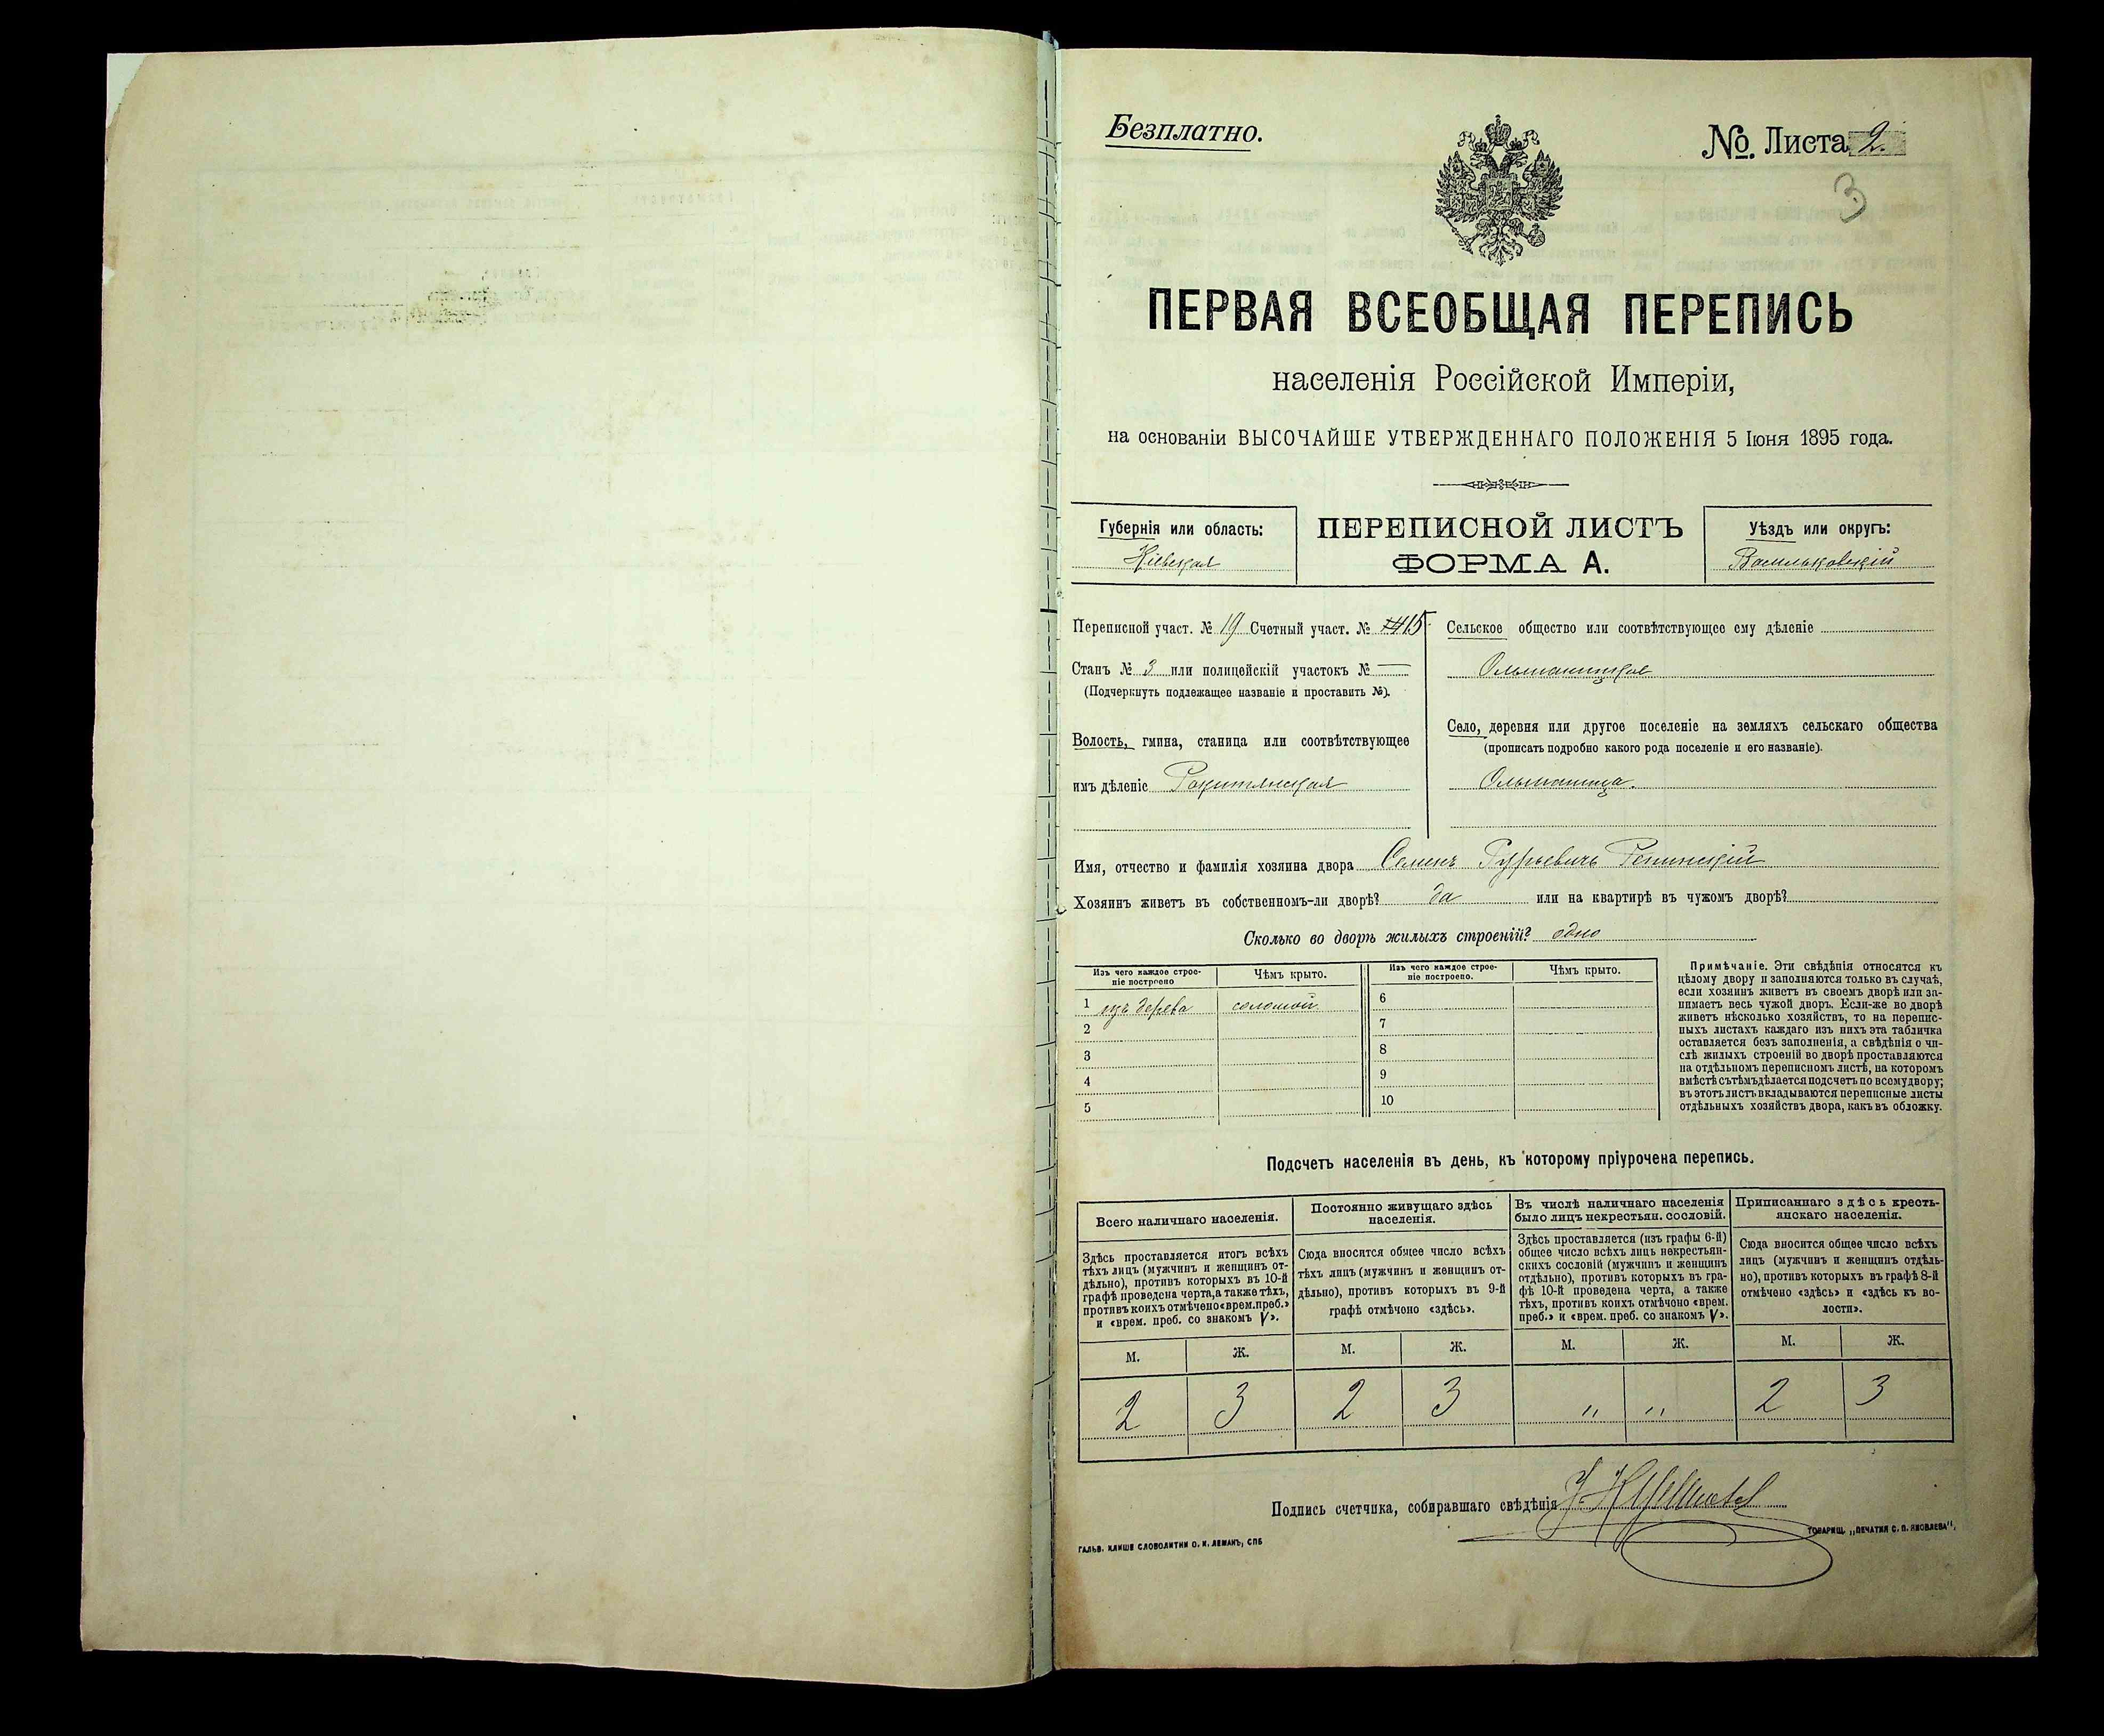 Безплатно.
№. Листа 2.
3
ПЕРВАЯ ВСЕОБЩАЯ ПЕРЕПИСЬ
населенія Россійской Имперіи,
на основаніи ВЫСОЧАЙШЕ УТВЕРЖДЕННАГО ПОЛОЖЕНІЯ 5 Іюня 1895 года.
Губернія или область:
Кіевская
ПЕРЕПИСНОЙ ЛИСТЪ
ФОРМА А.
Уѣздъ или округъ:
Васильковскій
Переписной участ. № 19 Счетный участ. № 15
Станъ № 3 или полицейскій участокъ № —
(Подчеркнуть подлежащее названіе и проставить №).
Волость, гмина, станица или соотвѣтствующее
имъ дѣленіе Рокитянская
Сельское общество или соотвѣтствующее ему дѣленіе
Ольшаницкое
Село, деревня или другое поселеніе на земляхъ сельскаго общества
(прописать подробно какого рода поселеніе и его названіе).
Ольшаница.
Имя, отчество и фамилія хозяина двора Семенъ Гурьевичъ Репинскій
Хозяинъ живетъ въ собственномъ-ли дворѣ? да или на квартирѣ въ чужомъ дворѣ?
Сколько во дворѣ жилыхъ строеній? одно
Изъ чего каждое строе-
ніе построено
Чѣмъ крыто.
Изъ чего каждое строе-
ніе построено.
Чѣмъ крыто.
1 изъ дерева соломой
2
3
4
5
6
7
8
9
10
Примѣчаніе. Эти свѣдѣнія относятся къ
цѣлому двору и заполняются только въ случаѣ,
если хозяинъ живетъ въ своемъ дворѣ или за-
нимаетъ весь чужой дворъ. Если-же во дворѣ
живетъ нѣсколько хозяйствъ, то на перепис-
ныхъ листахъ каждаго изъ нихъ эта табличка
оставляется безъ заполненія, а свѣдѣнія о чи-
слѣ жилыхъ строеній во дворѣ проставляются
на отдѣльномъ переписномъ листѣ, на которомъ
вмѣстѣ съ тѣмъ дѣлается подсчетъ по всему двору;
въ этотъ листъ вкладываются переписные листы
отдѣльныхъ хозяйствъ двора, какъ въ обложку.
Подсчетъ населенія въ день, къ которому пріурочена перепись.
Всего наличнаго населенія.
Здѣсь проставляется итогъ всѣхъ
тѣхъ лицъ (мужчинъ и женщинъ от-
дѣльно), противъ которыхъ въ 10-й
графѣ проведена черта, а также тѣхъ,
противъ коихъ отмѣчено «врем. преб.»
и «врем. преб. со знакомъ V».
Постоянно живущаго здѣсь
населенія.
Сюда вносится общее число всѣхъ
тѣхъ лицъ (мужчинъ и женщинъ от-
дѣльно), противъ которыхъ въ 9-й
графѣ отмѣчено «здѣсь».
Въ числѣ наличнаго населенія
было лицъ некрестьян. сословій.
Здѣсь проставляется (изъ графы 6-й)
общее число всѣхъ лицъ некрестьян-
скихъ сословій (мужчинъ и женщинъ
отдѣльно), противъ которыхъ въ гра-
фѣ 10-й проведена черта, а также
тѣхъ, противъ коихъ отмѣчено «врем.
преб.» и «врем. преб. со знакомъ V».
Приписаннаго здѣсь кресть-
янскаго населенія.
Сюда вносится общее число всѣхъ
лицъ (мужчинъ и женщинъ отдѣль-
но), противъ которыхъ въ графѣ 8-й
отмѣчено «здѣсь» и «здѣсь къ во-
лости».
М. Ж. М. Ж. М. Ж. М. Ж.
2 3 2 3 " " 2 3
Подпись счетчика, собиравшаго свѣдѣнія
ГАЛЬВ. КЛИШЕ СЛОВОЛИТНИ О. И. ЛЕМАНЪ, СПБ
ТОВАРИЩ. „ПЕЧАТНЯ С. П. ЯКОВЛЕВА",